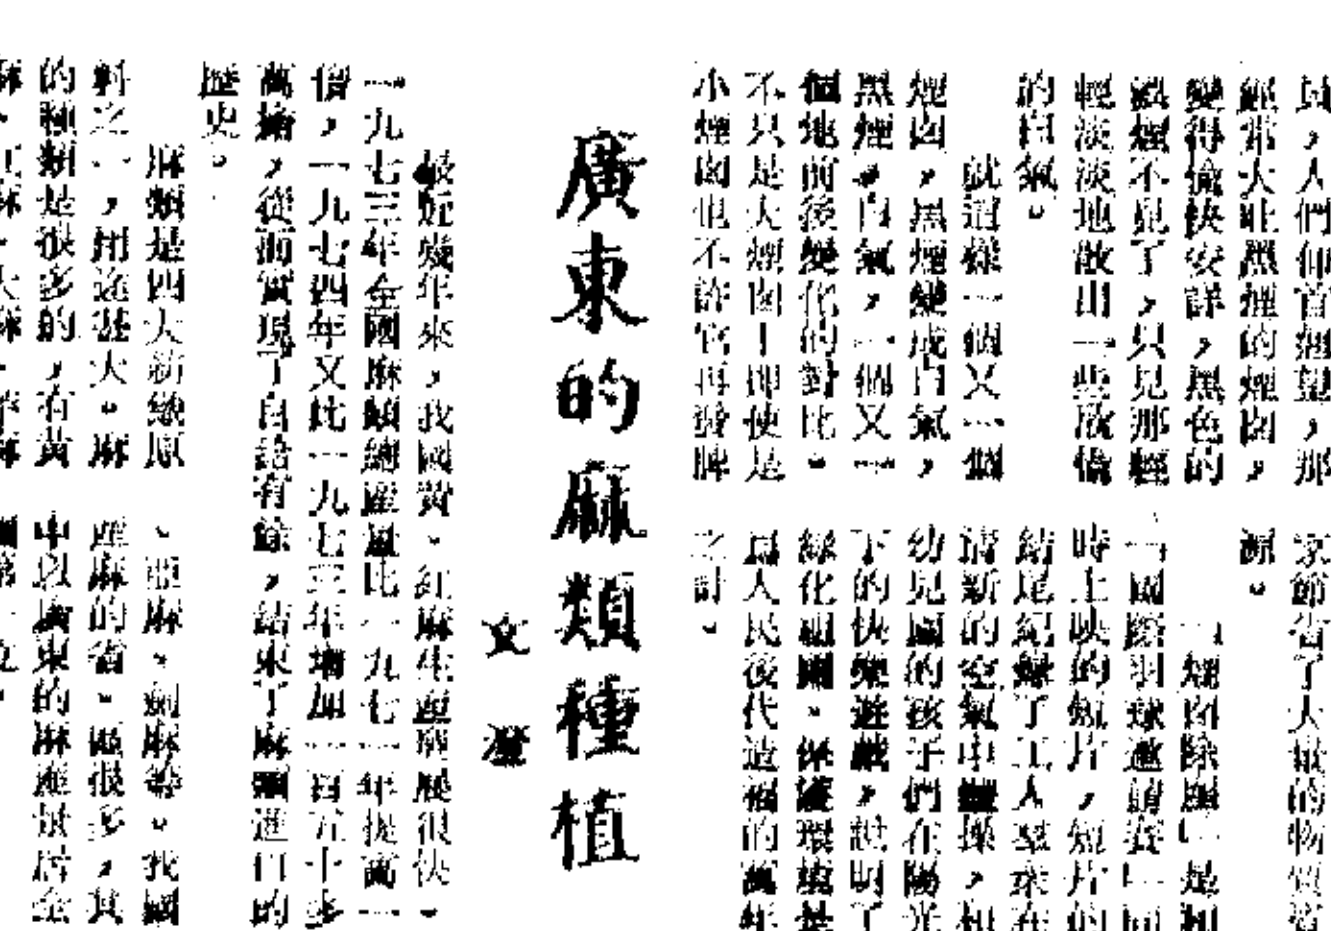 ，人們仰首翹望，那
經常大吐黑煙的煙囱，
變得愉快安詳，黑色的
濃煙不見了，只見那輕
輕淡淡地散出一些
的白氣。
就這樣一個又一個
煙囱，黑煙變成白氣，
黑煙，白氣，一個又一
個地前後變化的對比。
不只是大煙囱—即使是
小煙囱也不許它再發脾
家節省了大量的物質資
源。
「煙囱除黑」是和
「國際羽球邀請賽」同
時上映的短片，短片的
結尾紀錄了工人羣衆在
清新的空氣中體操，和
幼兒園的孩子們在陽光
下的快樂遊戲，說明了
綠化祖國、保護環境是
爲人民後代造福的萬年
之計。
廣東的麻類種植
文
最近幾年來，我國黃、紅麻生產發展很快。
一九七三年全國麻類總產量比一九七一年提高一
倍，一九七四年又比一九七三年增加一百五十多
萬擔，從而實現了自給有餘，結束了麻類進口的
歷史。
麻類是四大紡織原
料之一，用途甚大。麻
的種類是很多的，有黃
麻、紅麻、大麻、苧麻
、亞麻、劍麻等。我國
產麻的省、區很多，其
中以廣東的麻產量居全
國第一位。